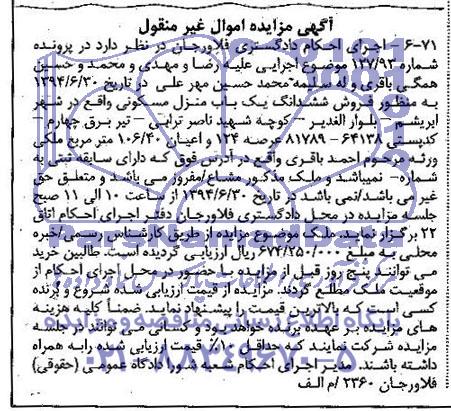 آگهی مزایده اموال غیر منقول
۶-۷۱- اجرای احکام دادگستری فلاورجان در نظر دارد در پرونده
شماره ۱۳۷/۹۳ موضوع اجرایی علیه رضا و مهدی و محمد و حسین
همگی باقری و له سلیمه محمد حسین مهر علی در تاریخ ۱۳۹۴/۶/۳۰
به منظور فروش ششدانگ یک باب منزل مسکونی واقع در شهر
ابریشم - بلوار الغدیر - کوچه شهید ناصر ترابی - تیر برق چهارم -
کدپستی ۶۴۱۳۸ - ۸۱۷۸۹ عرصه ۱۲۴ و اعیان ۱۰۶/۴۰ متر مربع ملکی
ورثه مرحوم احمد باقری واقع در آدرس فوق که دارای سابقه ثبتی به
شماره- نمیباشد و ملک مذکور مشاع/مفروز می باشد و متعلق حق
غیر می باشد/نمی باشد در تاریخ ۱۳۹۴/۶/۳۰ از ساعت ۱۰ الی ۱۱ صبح
جلسه مزایده در محل دادگستری فلاورجان دفتر اجرای احکام اتاق
۲۲ برگزار نماید. ملک موضوع مزایده از طریق کارشناس رسمی/خبره
محلی به مبلغ ۶۷۴/۲۵۰/۰۰۰ ریال ارزیابی گردیده است. طالبین خرید
می توانند پنج روز قبل از مزایده با حضور در محل اجرای احکام از
موقعیت ملک مطلع گردند. مزایده از قیمت ارزیابی شده شروع و برنده
کسی است که بالاترین قیمت را پیشنهاد نماید. ضمناً کلیه هزینه
های مزایده بر عهده برنده خواهد بود و کسانی می توانند در جلسه
مزایده شرکت نمایند که حداقل ۱۰٪ قیمت ارزیابی شده را به همراه
داشته باشند. مدیر اجرای احکام شعبه شورا دادگاه عمومی (حقوقی)
فلاورجان ۲۳۶۰ /م الف
ParsNamadData
پایگاه اطلاع رسانی مناقصه و مزایده
۰۲۱-۸۸۳۴۹۶۷۰-۵